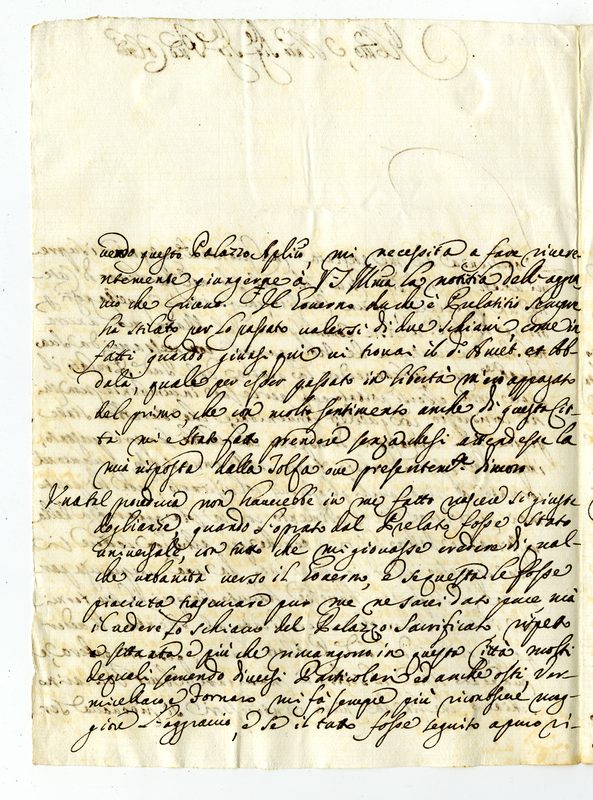 uendo questo Palazzo Aplico, mi necessita a fare riuere-
ntemente giungerne à VS Illma la notitia dell' aggra
uio che riceuo. Il Gouerno da che è Prelatitio sempre
hà stilato per lo passato ualersi di due schiaui come in
fatti quando giunsi qui ui trouai il d. Amet, et Ab-
dala, quale per esser passato in libertà m'ero appagato
del primo, che con molto sentimento anche di questa Cit-
tà mi è stato fatto prendere senza che si attendesse la
mia risposta dalla Tolfa oue presentemte dimoro
Vna tal procedura non hauerebbe in me fatto nascere si giuste
doglianze, quando l'oprato dal Prelato fosse stato
uniuersale, con tutto che mi giouasse credere di qual-
che urbanità uerso il Gouerno, e se questa le fosse
piaciuta trascurare pur me ne sarei dato pace mà
il uedere lo schiauo del Palazzo Sacrificato rispetto
à settanta, e più che rimangono in questa Città molti
de quali seruendo diuersi Particolari ed anche osti, Ver-
micellaro, e Fornaro mi fà sempre più riconoscere mag-
giore l'aggrauio, e se il tutto fosse seguito a puro ri-